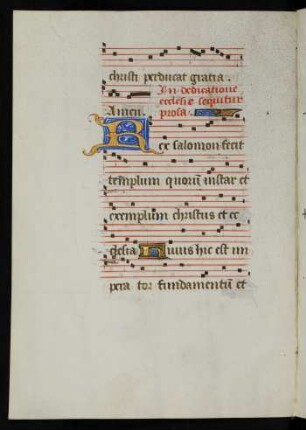 christi perducat gratia.
In dedicatione
ecclesie sequitur
Amen. prosa.
Rex salomon fecit
templum quorū instar et
exemplum christus et ec
clesia Huius hic est im
pera tor fundamentū et